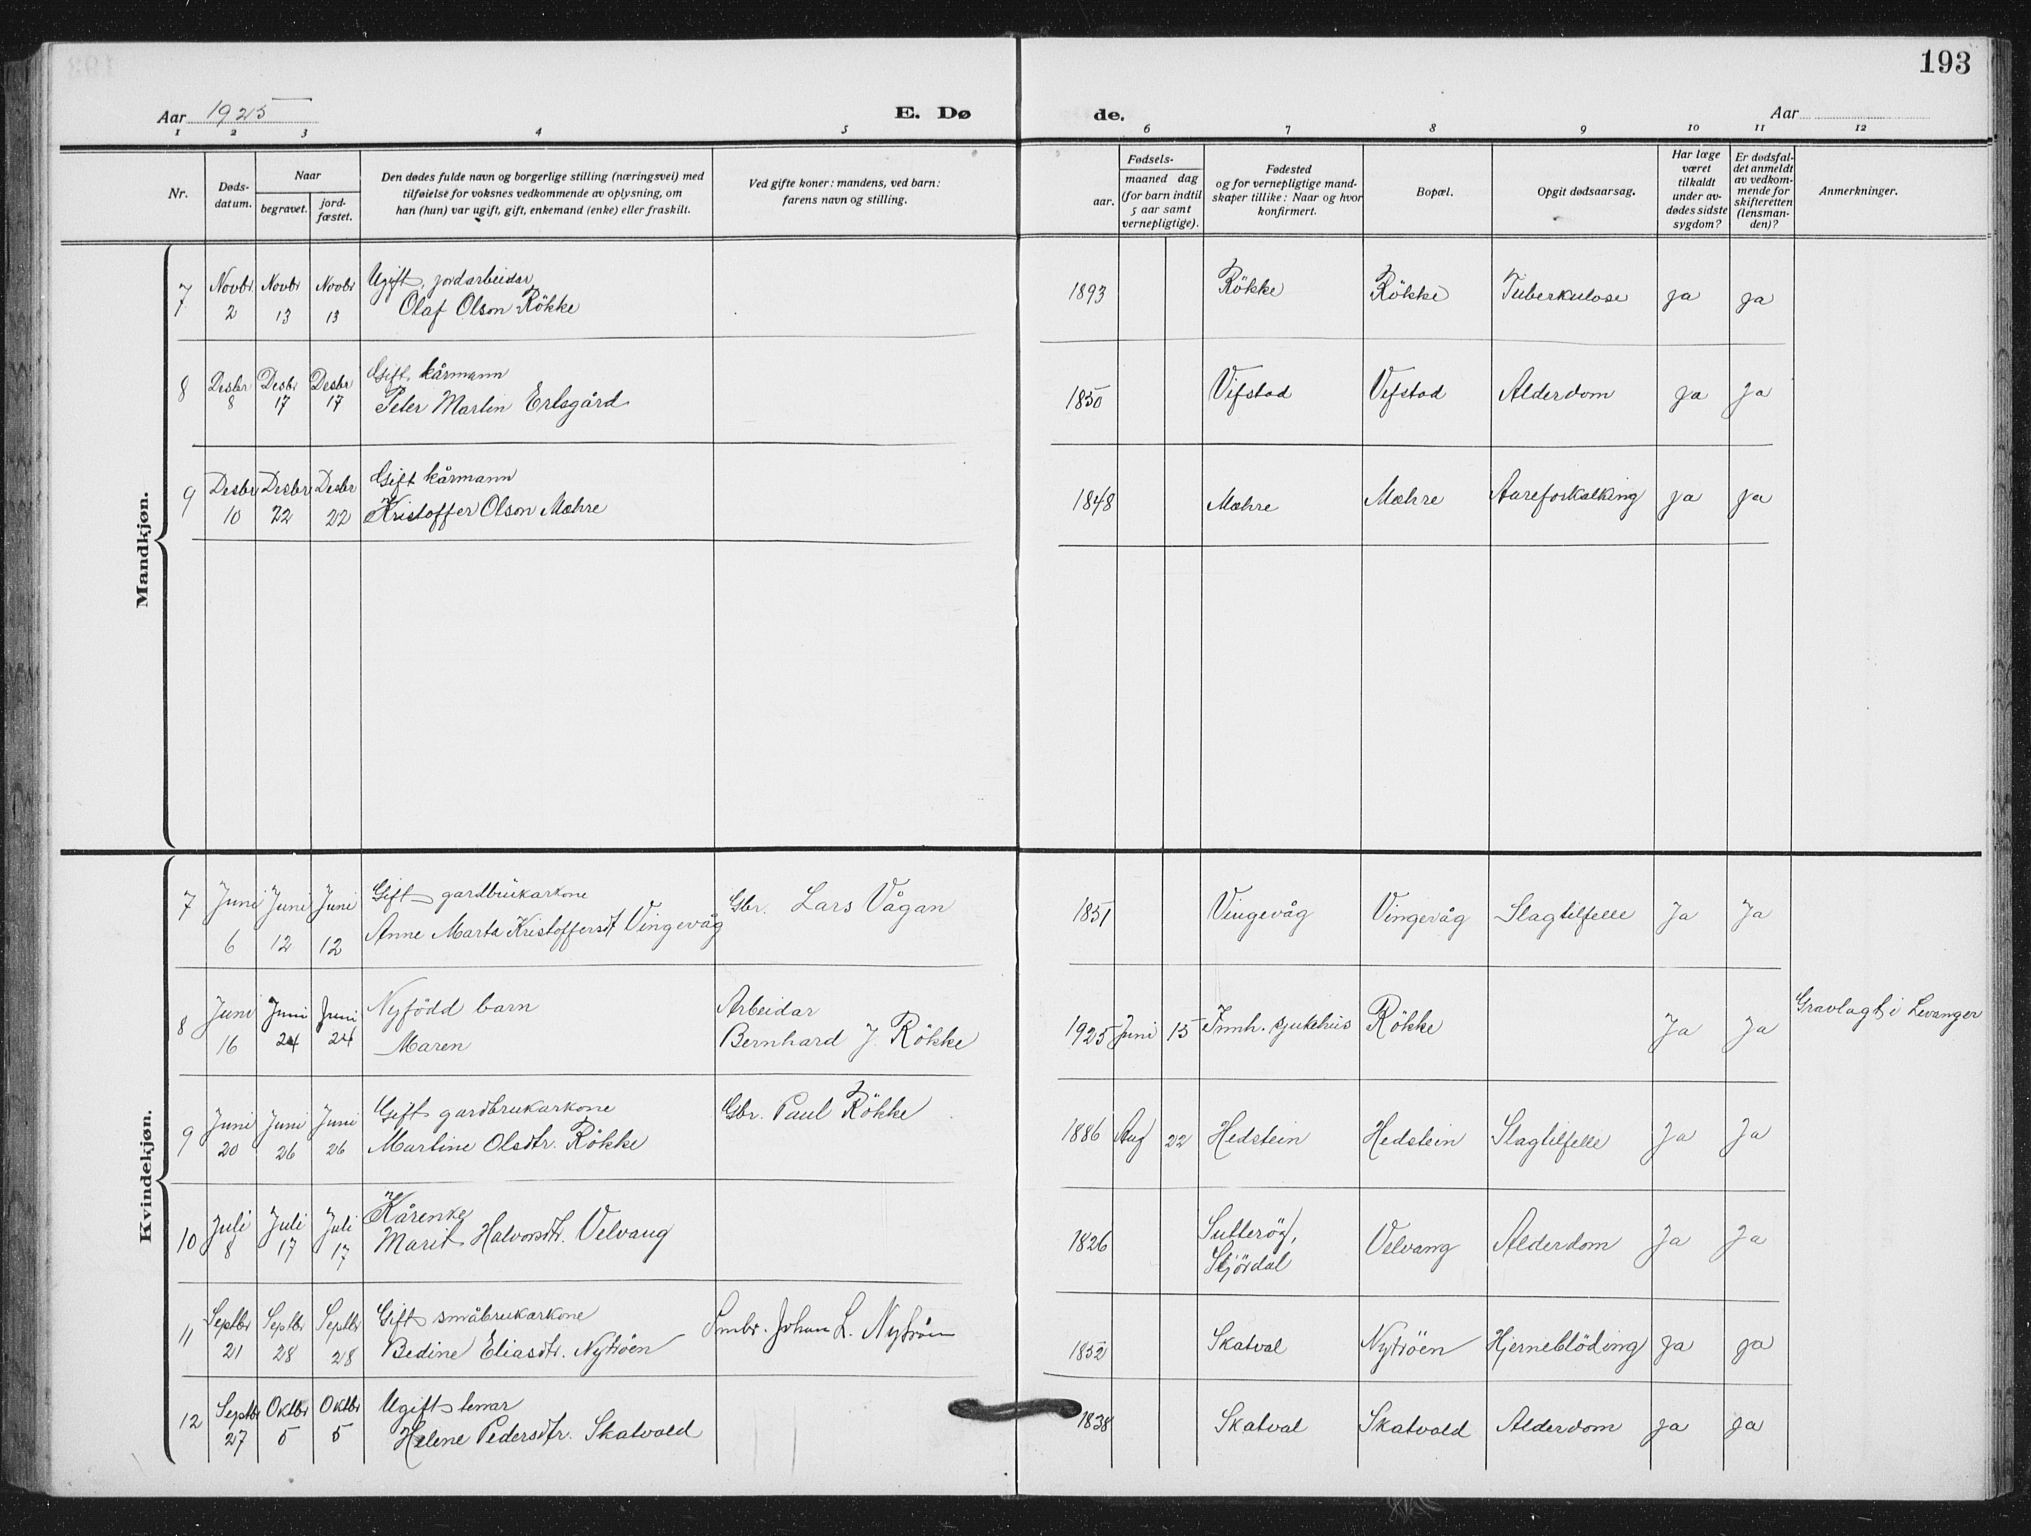 193
Aar 1925
E. Døde.
Aar
1 2 3 4 5 6 7 8 9 10 11 12
Nr.
Døds-
datum.
Naar
begravet.
jord-
fæstet.
Den dødes fulde navn og borgerlige stilling (næringsvei) med
tilføielse for voksnes vedkommende av oplysning, om
han (hun) var ugift, gift, enkemand (enke) eller fraskilt.
Ved gifte koner: mandens, ved barn:
farens navn og stilling.
Fødsels-
aar.
maaned dag
(for barn indtil
5 aar samt
vernepligtige).
Fødested
og for vernepligtige mand-
skaper tillike: Naar og hvor
konfirmert.
Bopæl.
Opgit dødsaarsag.
Har læge
været
tilkaldt
under av-
dødes sidste
sygdom?
Er dødsfal-
det anmeldt
av vedkom-
mende for
skifteretten
(lensman-
den)?
Anmerkninger.
Mandkjøn.
7 Novbr Novbr Novbr Ugift, jordarbeidar
2 13 13 Olaf Olson Rökke 1893 Rökke Rökke Tuberkulose ja ja
8 Desbr Desbr Desbr Gift kårmann
8 17 17 Peter Martin Ertsgård 1850 Vifstad Vifstad Alderdom ja ja
9 Desbr Desbr Desbr Gift kårmann
10 22 22 Kristoffer Olson Mæhre 1848 Mæhre Mæhre Aareforkalking ja ja
Kvindekjøn.
7 Juni Juni Juni Gift gardbrukarkone Gbr. Lars Vågan
6 12 12 Anne Marta Kristoffersdt Vingevåg 1851 Vingevåg Vingevåg Slagtilfelle Ja Ja
8 Juni Juni Juni Nyfödd barn Arbeidar
16 24 24 Maren Bernhard J. Rökke 1925 Juni 15 Innh. sjukehus Rökke Ja Ja Gravlagt i Levanger
9 Juni Juni Juni Gift gardbrukarkone Gbr. Paul Rökke
20 26 26 Martine Olsdtr. Rökke 1886 Aug 22 Hedstein Hedstein Slagtilfelle Ja Ja
10 Juli Juli Juli Kårenke
8 17 17 Marit Halvorsdtr. Velvang 1826 Sutterö, Stjördal Velvang Alderdom Ja Ja
11 Septbr Septbr Septbr Gift småbrukarkone Smbr. Johan L. Nytröen
21 28 28 Bedine Eliasdtr. Nytröen 1852 Skatval Nytröen Hjerneblöding ja ja
12 Septbr Oktbr Oktbr Ugift
27 5 5 Helene Pedersdtr. Skatvold 1838 Skatval Skatvold Alderdom ja ja